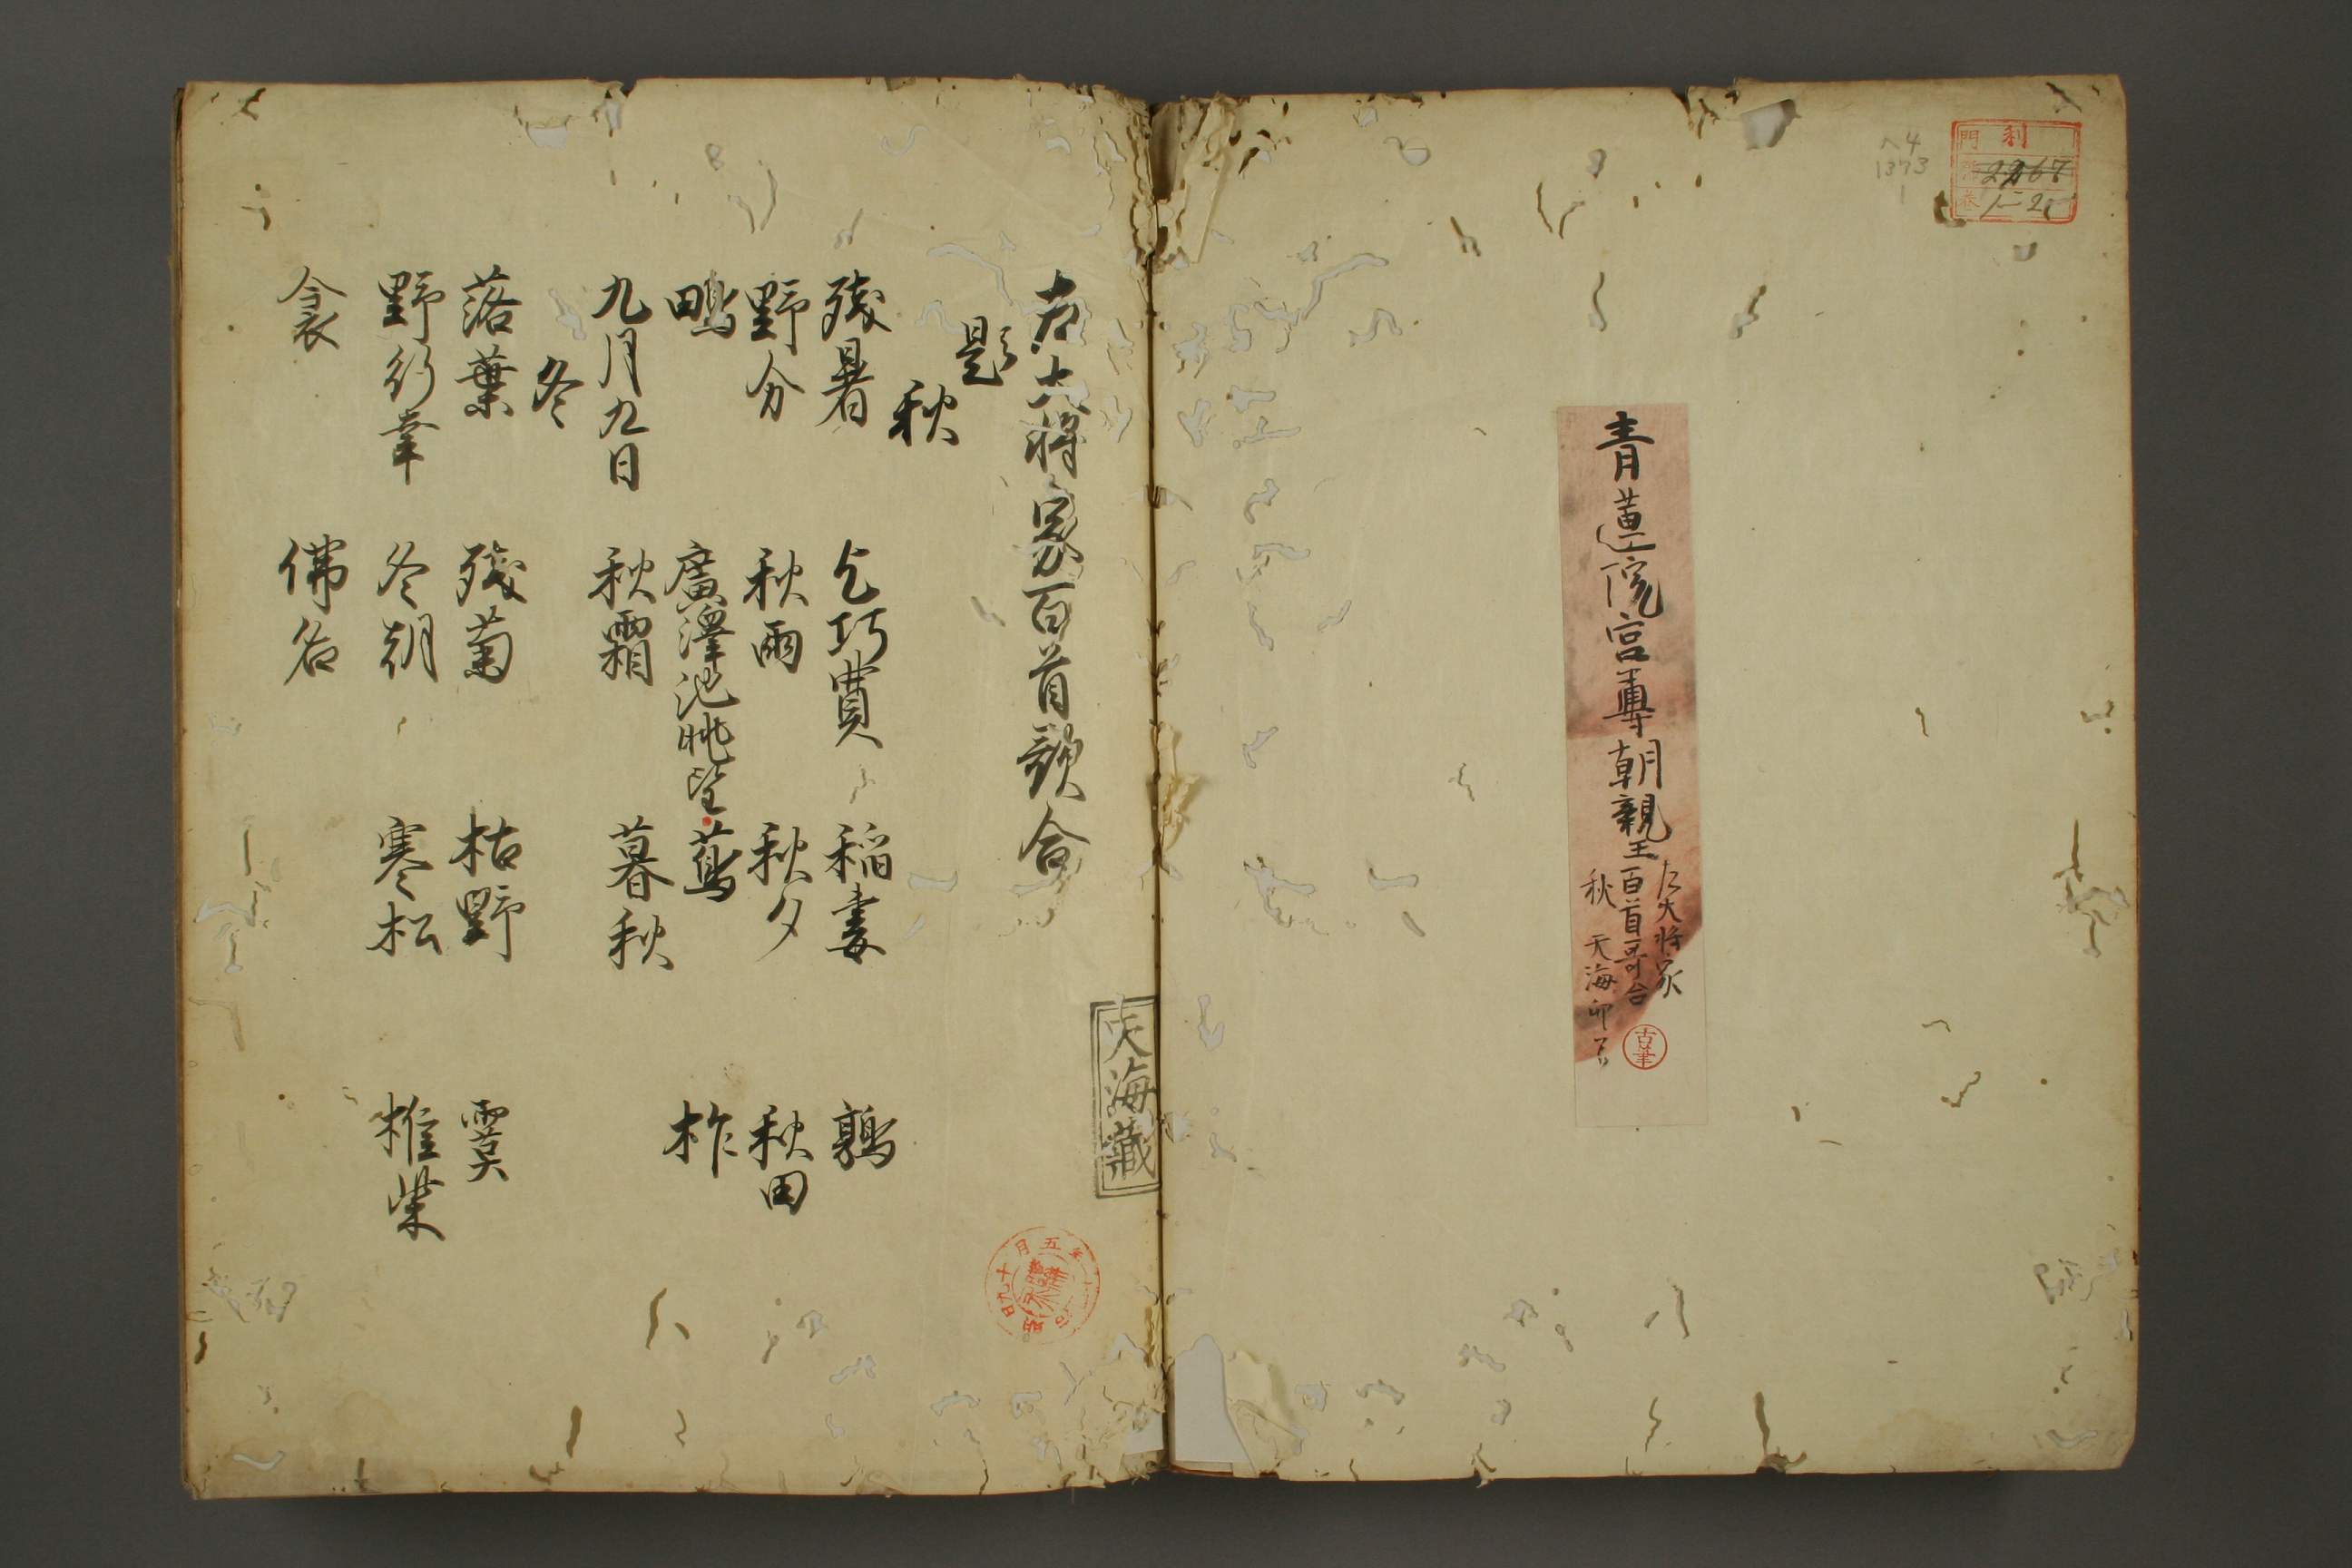 門 利
號 2267
巻 1-2
ヘ4
1373
1
青蓮院宮尊朝親王
左大将家
百首哥合
秋
天海印有
古筆
左大將家百首歌合
題
秋
殘暑 乞巧奠 稲妻 鶉
野分 秋雨 秋夕 秋田
鴫 廣澤池眺望 蔦 柞
九月九日 秋霜 暮秋
冬
落葉 殘菊 枯野 霙
野行幸 冬朝 寒松 椎柴
衾 佛名
天海藏